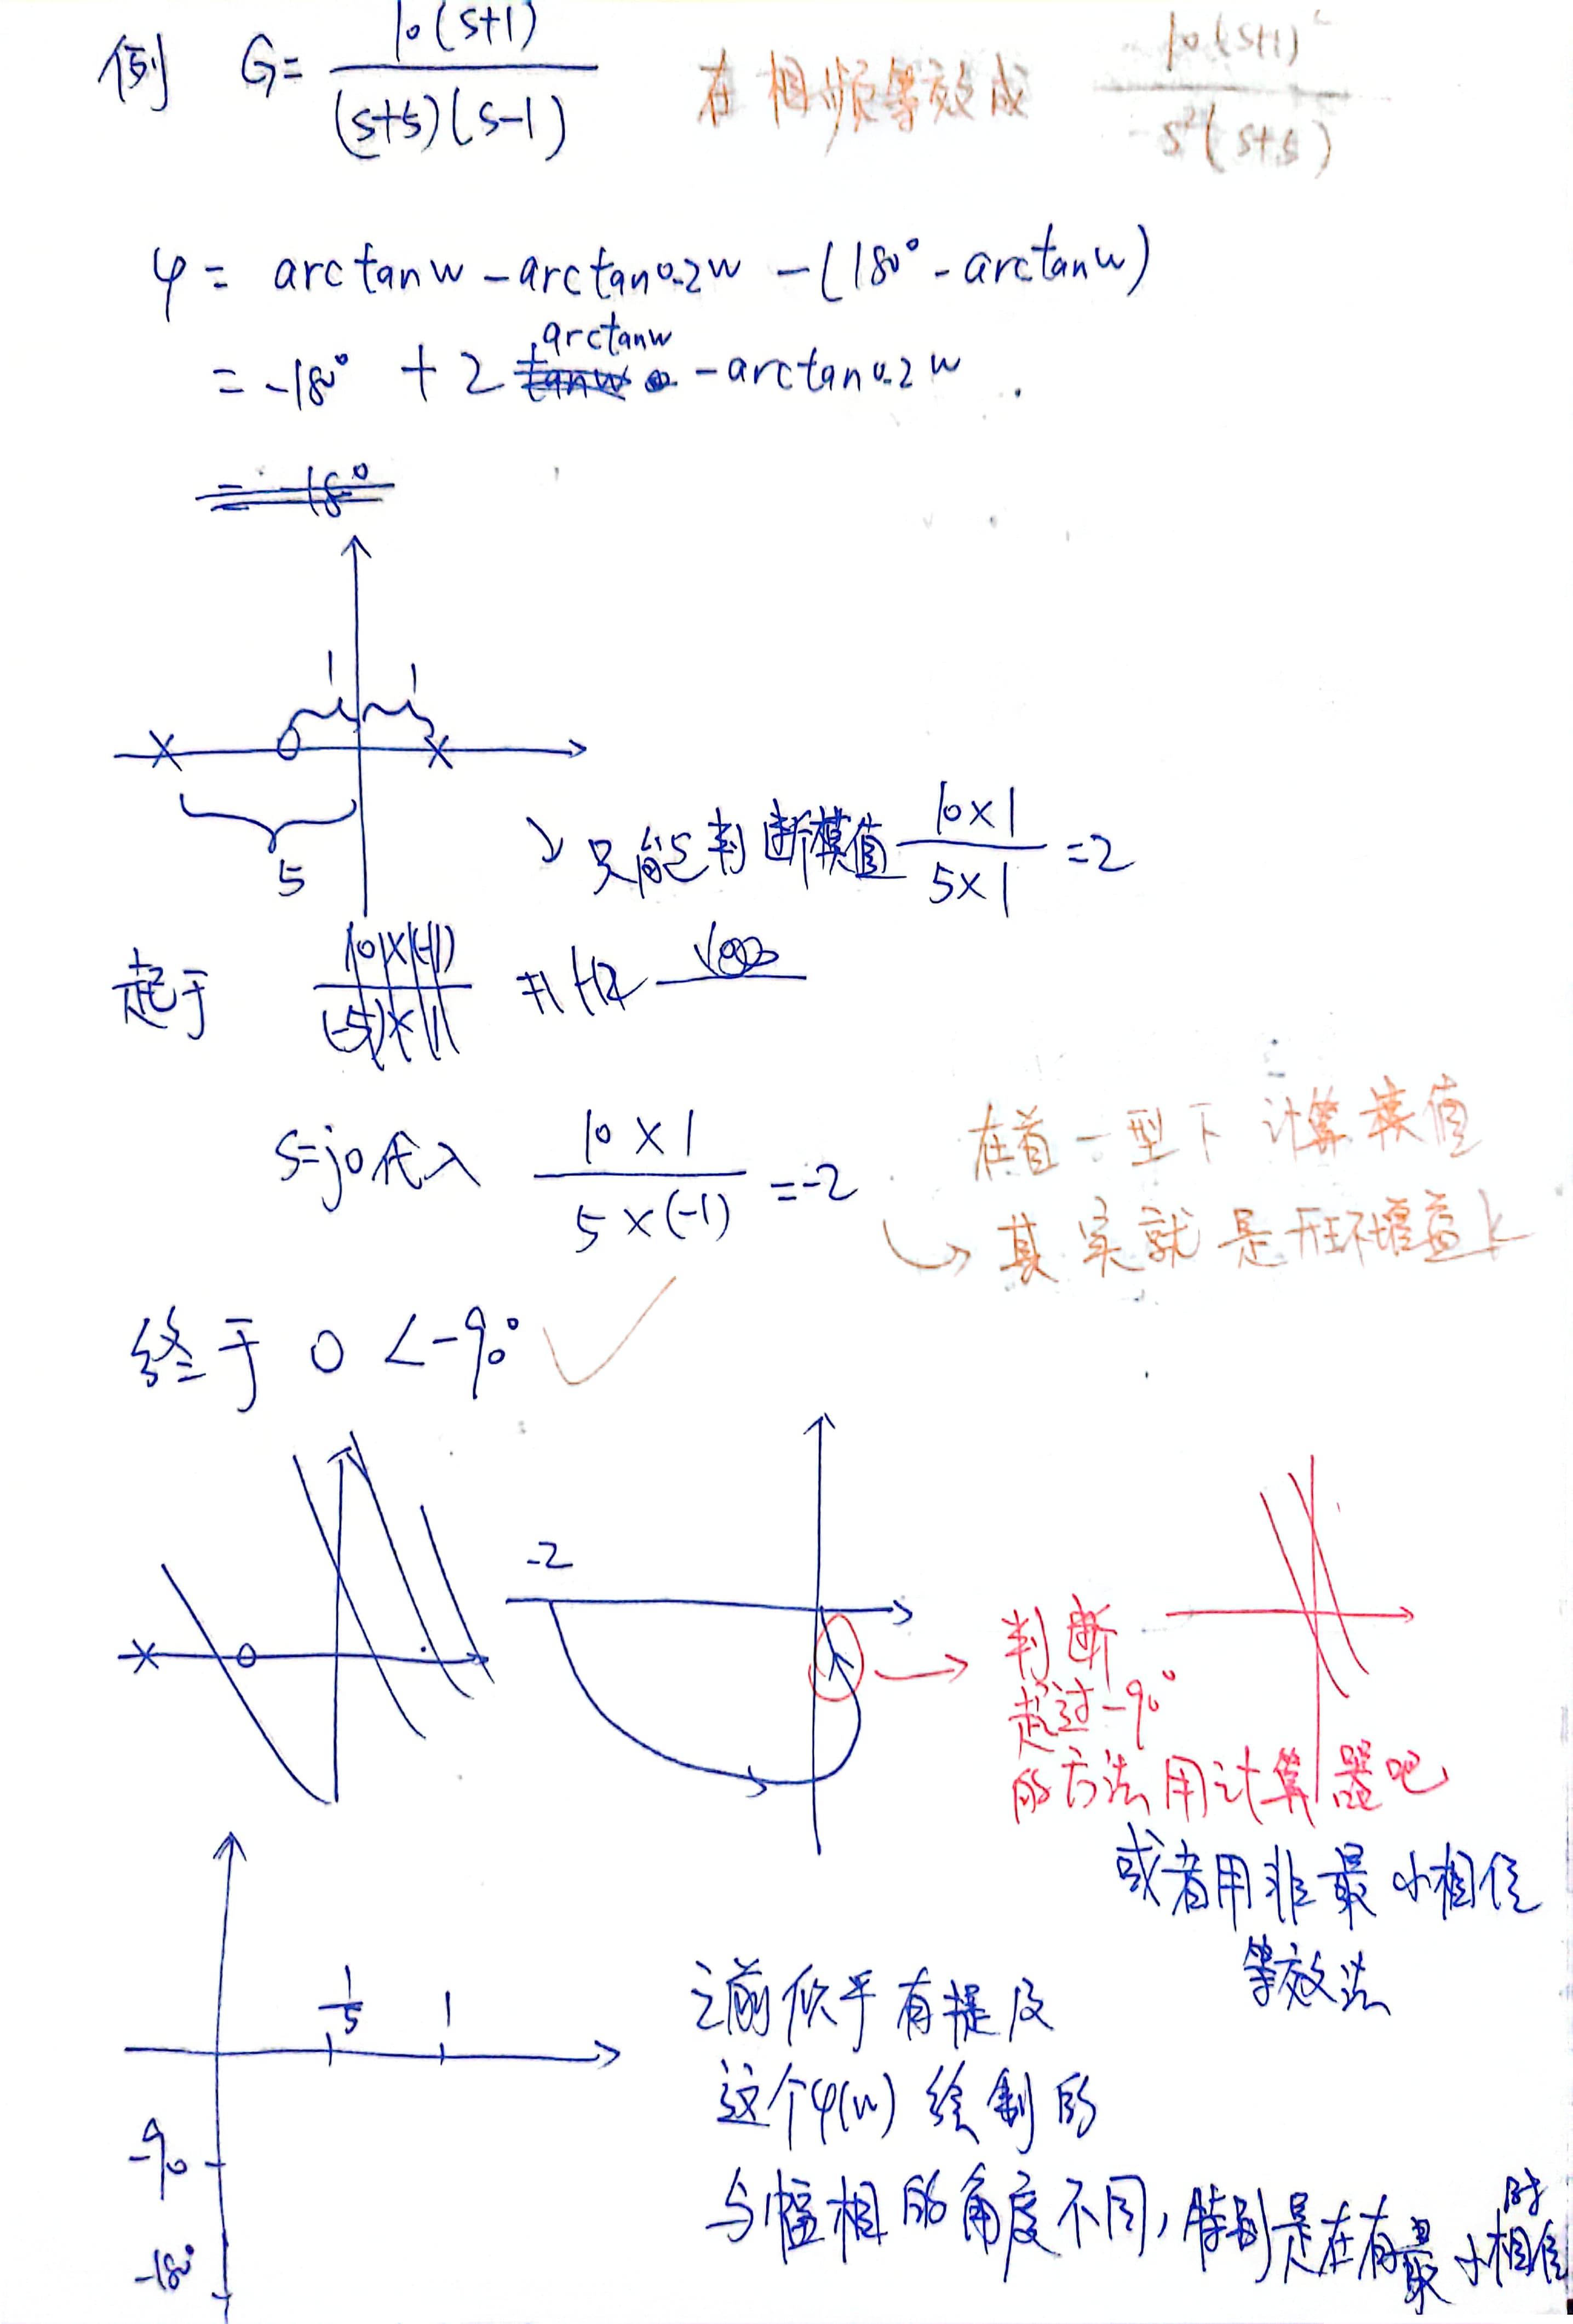 例 G= 10(s+1) / (s+5)(s-1) 在相频等效成 10(s+1)² / s²(s+5)
φ = arctanw - arctan0.2w - (180° - arctanw)
= -180° + 2 arctanw - arctan0.2w
= -180°
1 1
5
只能判断模值 10×1 / 5×1 =2
起于
s=j0代入 10×1 / 5×(-1) =-2
在首一型下计算模值
其实就是开环增益k
终于 0∠-90°
-2
判断
超过-90°
的方法用计算器吧
或者用非最小相位
等效法
1/5 1
-90
-180°
之前似乎有提及
这个φ(w)绘制的
与幅相的角度不同,特别是在有最小相位时